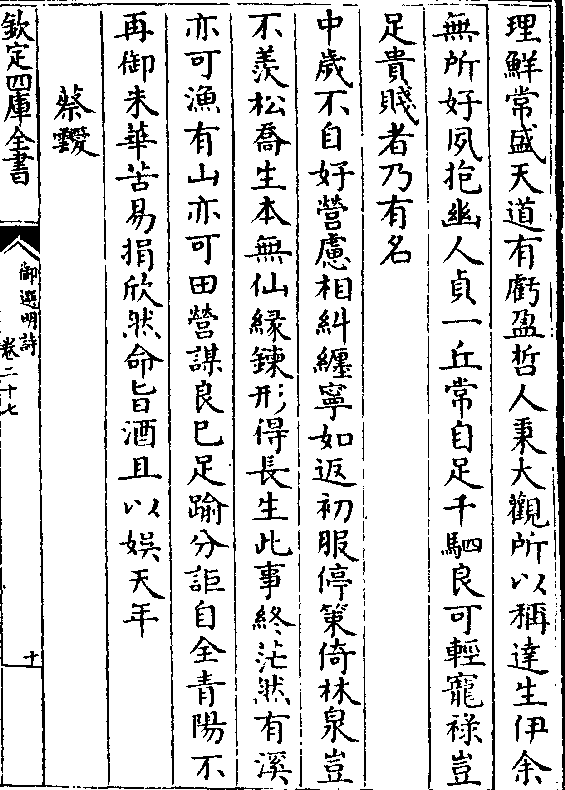 理鮮常盛天道有虧盈哲人秉大觀所以稱達生伊余
無所好夙抱幽人貞一丘常自足千駟良可輕寵祿豈
足貴賤者乃有名
中歲不自好營慮相糾纏寧如返初服停策倚林泉豈
不羨松喬生本無仙緣鍊形得長生此事終茫然有溪
亦可漁有山亦可田營謀良已足踰分詎自全青陽不
再御朱華苦易捐欣然命旨酒且以娛天年
蔡靉
欽定四庫全書
御選明詩
卷二十七
十